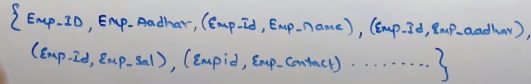 { Emp_ID, Emp_Aadhar, (Emp_Id, Emp_name), (Emp_Id, Emp_aadhar),
(Emp_Id, Emp_Sal), (Empid, Emp_Contact) ......... }